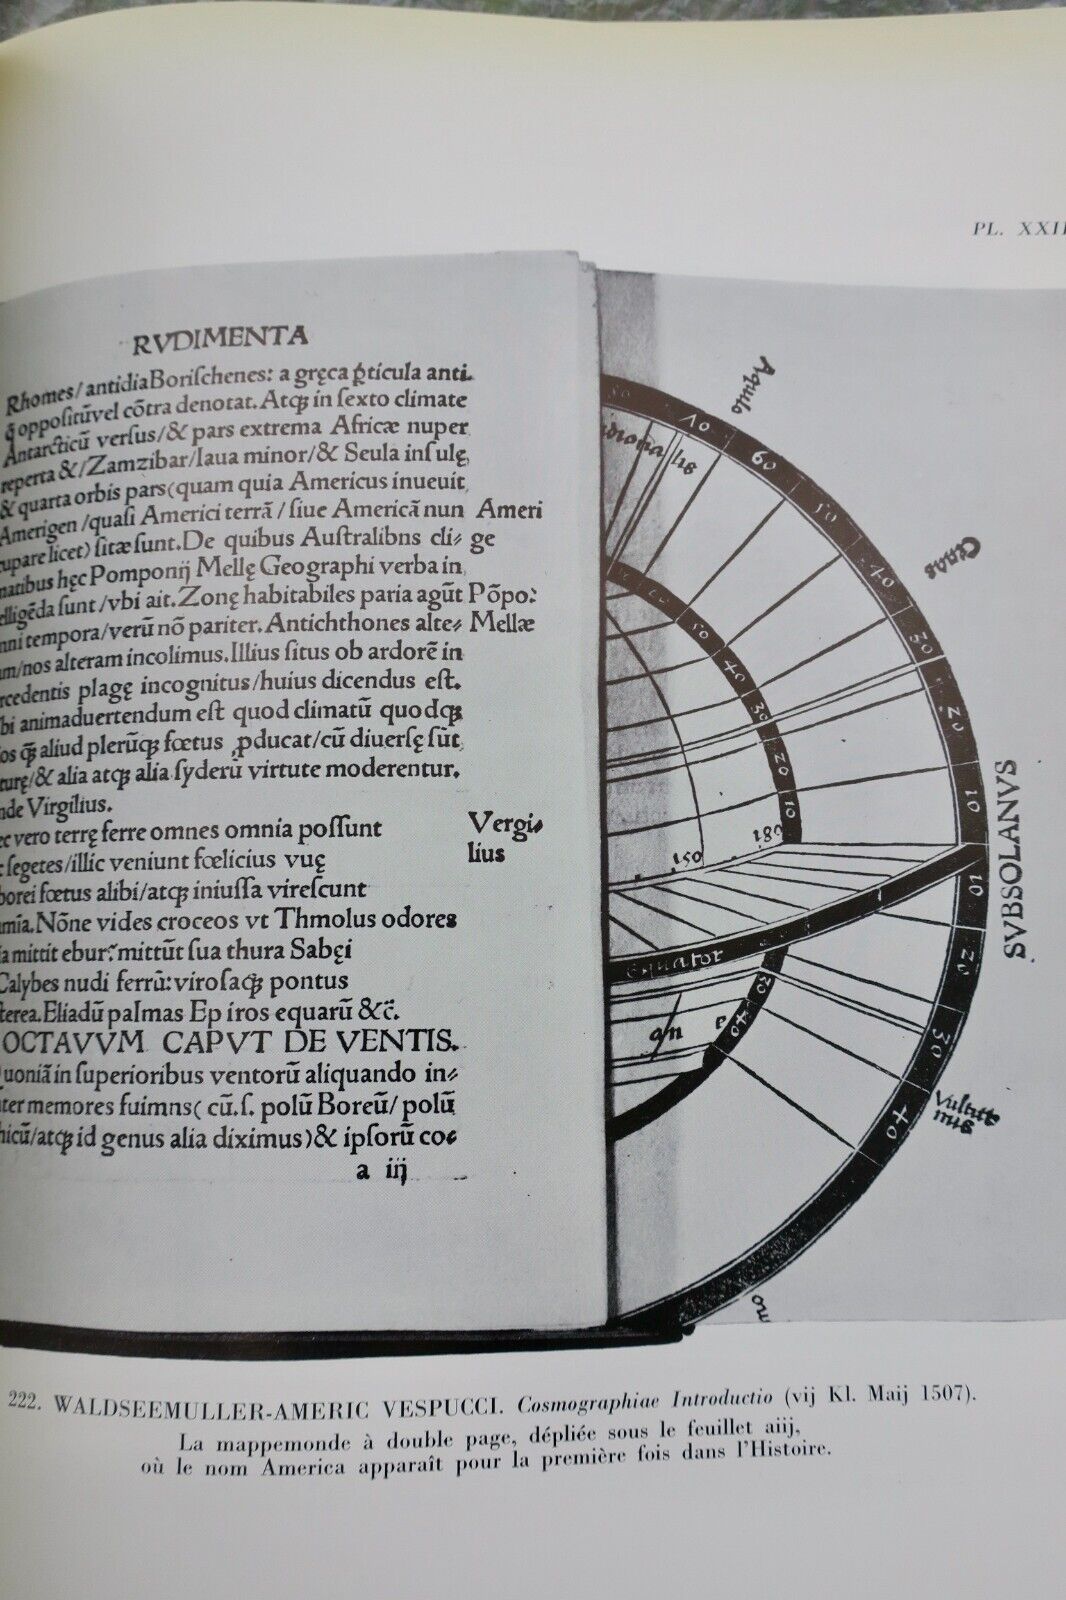 PL. XXII
RVDIMENTA
Rhomes/antidiaBoriſchenes: a gręca ꝑticula anti.
ꝙ oppoſitũvel cõtra denotat. Atqꝫ in ſexto climate
Antarcticũ verſus/& pars extrema Africæ nuper
reperta &/Zamzibar/Iaua minor/& Seula inſulę,
& quarta orbis pars(quam quia Americus inueuit
Amerigen/quaſi Americi terrã/ſiue Americã nun Ameri
cupare licet) ſitæ ſunt. De quibus Auſtralibns cli⸗ ge
matibus hęc Pomponij Mellę Geographi verba in,
elligẽda ſunt/vbi ait. Zonę habitabiles paria agũt Põpo:
nni tempora/verũ nõ pariter. Antichthones alte⸗ Mellæ
um/nos alteram incolimus. Illius ſitus ob ardorẽ in
rcedentis plagę incognitus/huius dicendus eſt.
bi animaduertendum eſt quod climatũ quodqꝫ
os ꝙ̃ aliud plerũqꝫ fœtus ꝓducat/cũ diuerſę ſũt
turę/& alia atqꝫ alia ſyderũ virtute moderentur.
nde Virgilius.
ec vero terrę ferre omnes omnia poſſunt Vergi⸗
c ſegetes/illic veniunt fœlicius vuę lius
borei fœtus alibi/atqꝫ iniuſſa vireſcunt
amĩa. Nõne vides croceos vt Thmolus odores
ia mittit ebur: mittũt ſua thura Sabęi
Calybes nudi ferrũ: viroſaqꝫ pontus
terea. Eliadũ palmas Ep iros equarũ &c̃.
OCTAVVM CAPVT DE VENTIS.
Quoniã in ſuperioribus ventorũ aliquando in⸗
ter memores fuimns( cũ. ſ. polũ Boreũ/ polũ
hicũ/atqꝫ id genus alia diximus)& ipſorũ co⸗
a iij
Aquilo
Cecias
SVBSOLANVS
80
70
60
50
40
30
20
10
10
20
30
40
50
40
30
20
10
180
150
Equator
30
40
222. WALDSEEMULLER-AMERIC VESPUCCI. Cosmographiae Introductio (vij Kl. Maij 1507).
La mappemonde à double page, dépliée sous le feuillet aiij,
où le nom America apparaît pour la première fois dans l'Histoire.